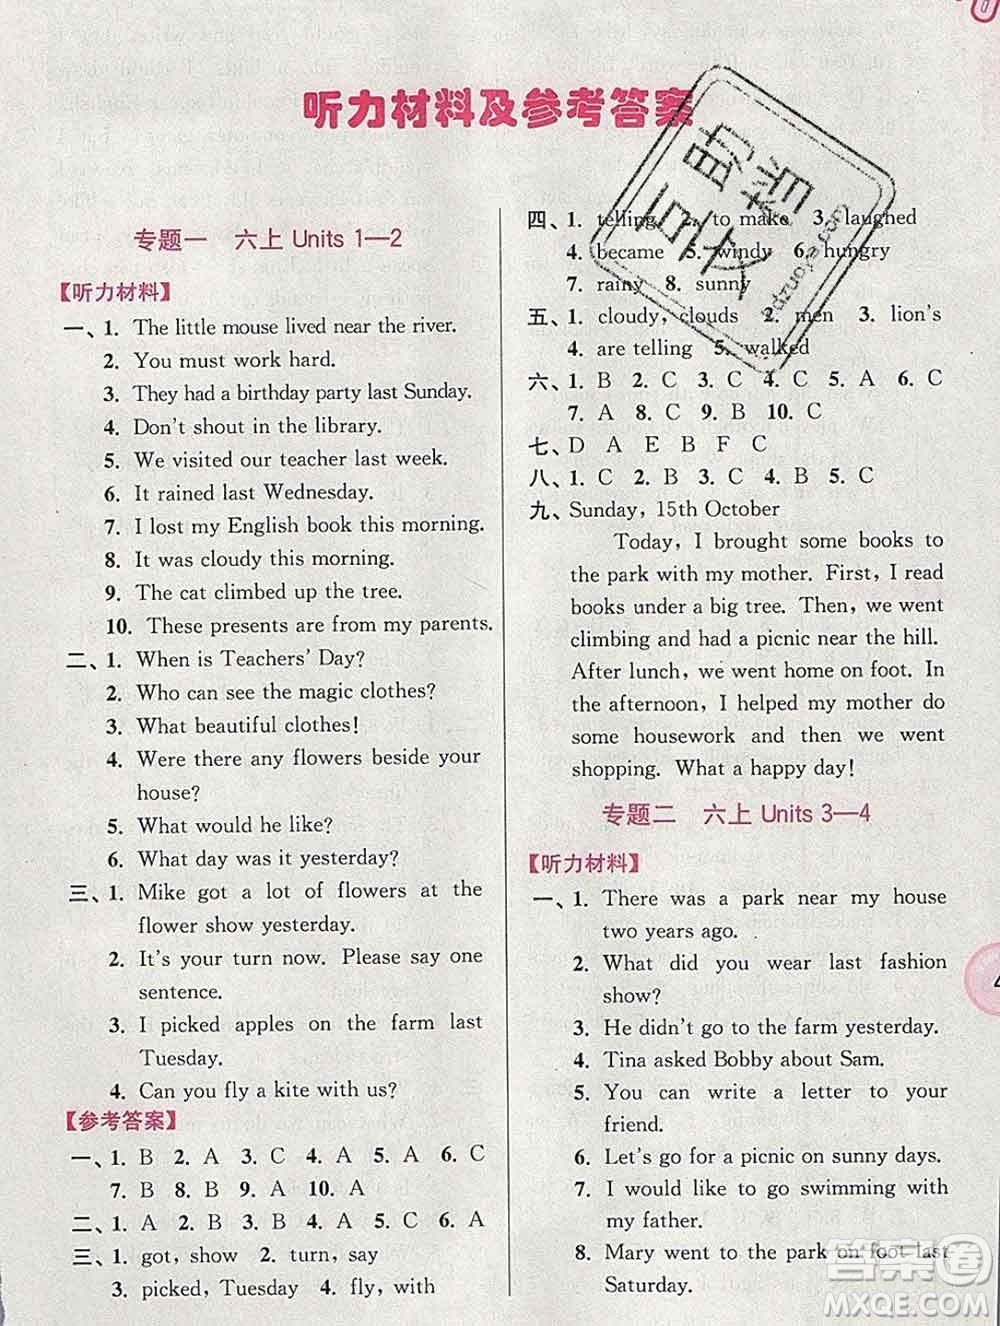 听力材料及参考答案
专题一 六上 Units 1—2
【听力材料】
一、1. The little mouse lived near the river.
2. You must work hard.
3. They had a birthday party last Sunday.
4. Don't shout in the library.
5. We visited our teacher last week.
6. It rained last Wednesday.
7. I lost my English book this morning.
8. It was cloudy this morning.
9. The cat climbed up the tree.
10. These presents are from my parents.
二、1. When is Teachers' Day?
2. Who can see the magic clothes?
3. What beautiful clothes!
4. Were there any flowers beside your
house?
5. What would he like?
6. What day was it yesterday?
三、1. Mike got a lot of flowers at the
flower show yesterday.
2. It's your turn now. Please say one
sentence.
3. I picked apples on the farm last
Tuesday.
4. Can you fly a kite with us?
【参考答案】
一、1. B 2. A 3. C 4. A 5. A 6. C
7. B 8. B 9. A 10. A
二、1. A 2. B 3. B 4. A 5. C 6. A
三、1. got, show 2. turn, say
3. picked, Tuesday 4. fly, with
四、1. telling 2. to make 3. laughed
4. became 5. windy 6. hungry
7. rainy 8. sunny
五、1. cloudy, clouds 2. men 3. lion's
4. are telling 5. walked
六、1. B 2. C 3. C 4. C 5. A 6. C
7. A 8. C 9. B 10. C
七、D A E B F C
八、1. C 2. B 3. C 4. B 5. C
九、Sunday, 15th October
Today, I brought some books to
the park with my mother. First, I read
books under a big tree. Then, we went
climbing and had a picnic near the hill.
After lunch, we went home on foot. In
the afternoon, I helped my mother do
some housework and then we went
shopping. What a happy day!
专题二 六上 Units 3—4
【听力材料】
一、1. There was a park near my house
two years ago.
2. What did you wear last fashion
show?
3. He didn't go to the farm yesterday.
4. Tina asked Bobby about Sam.
5. You can write a letter to your
friend.
6. Let's go for a picnic on sunny days.
7. I would like to go swimming with
my father.
8. Mary went to the park on foot last
Saturday.
答案圈
MXQE.COM